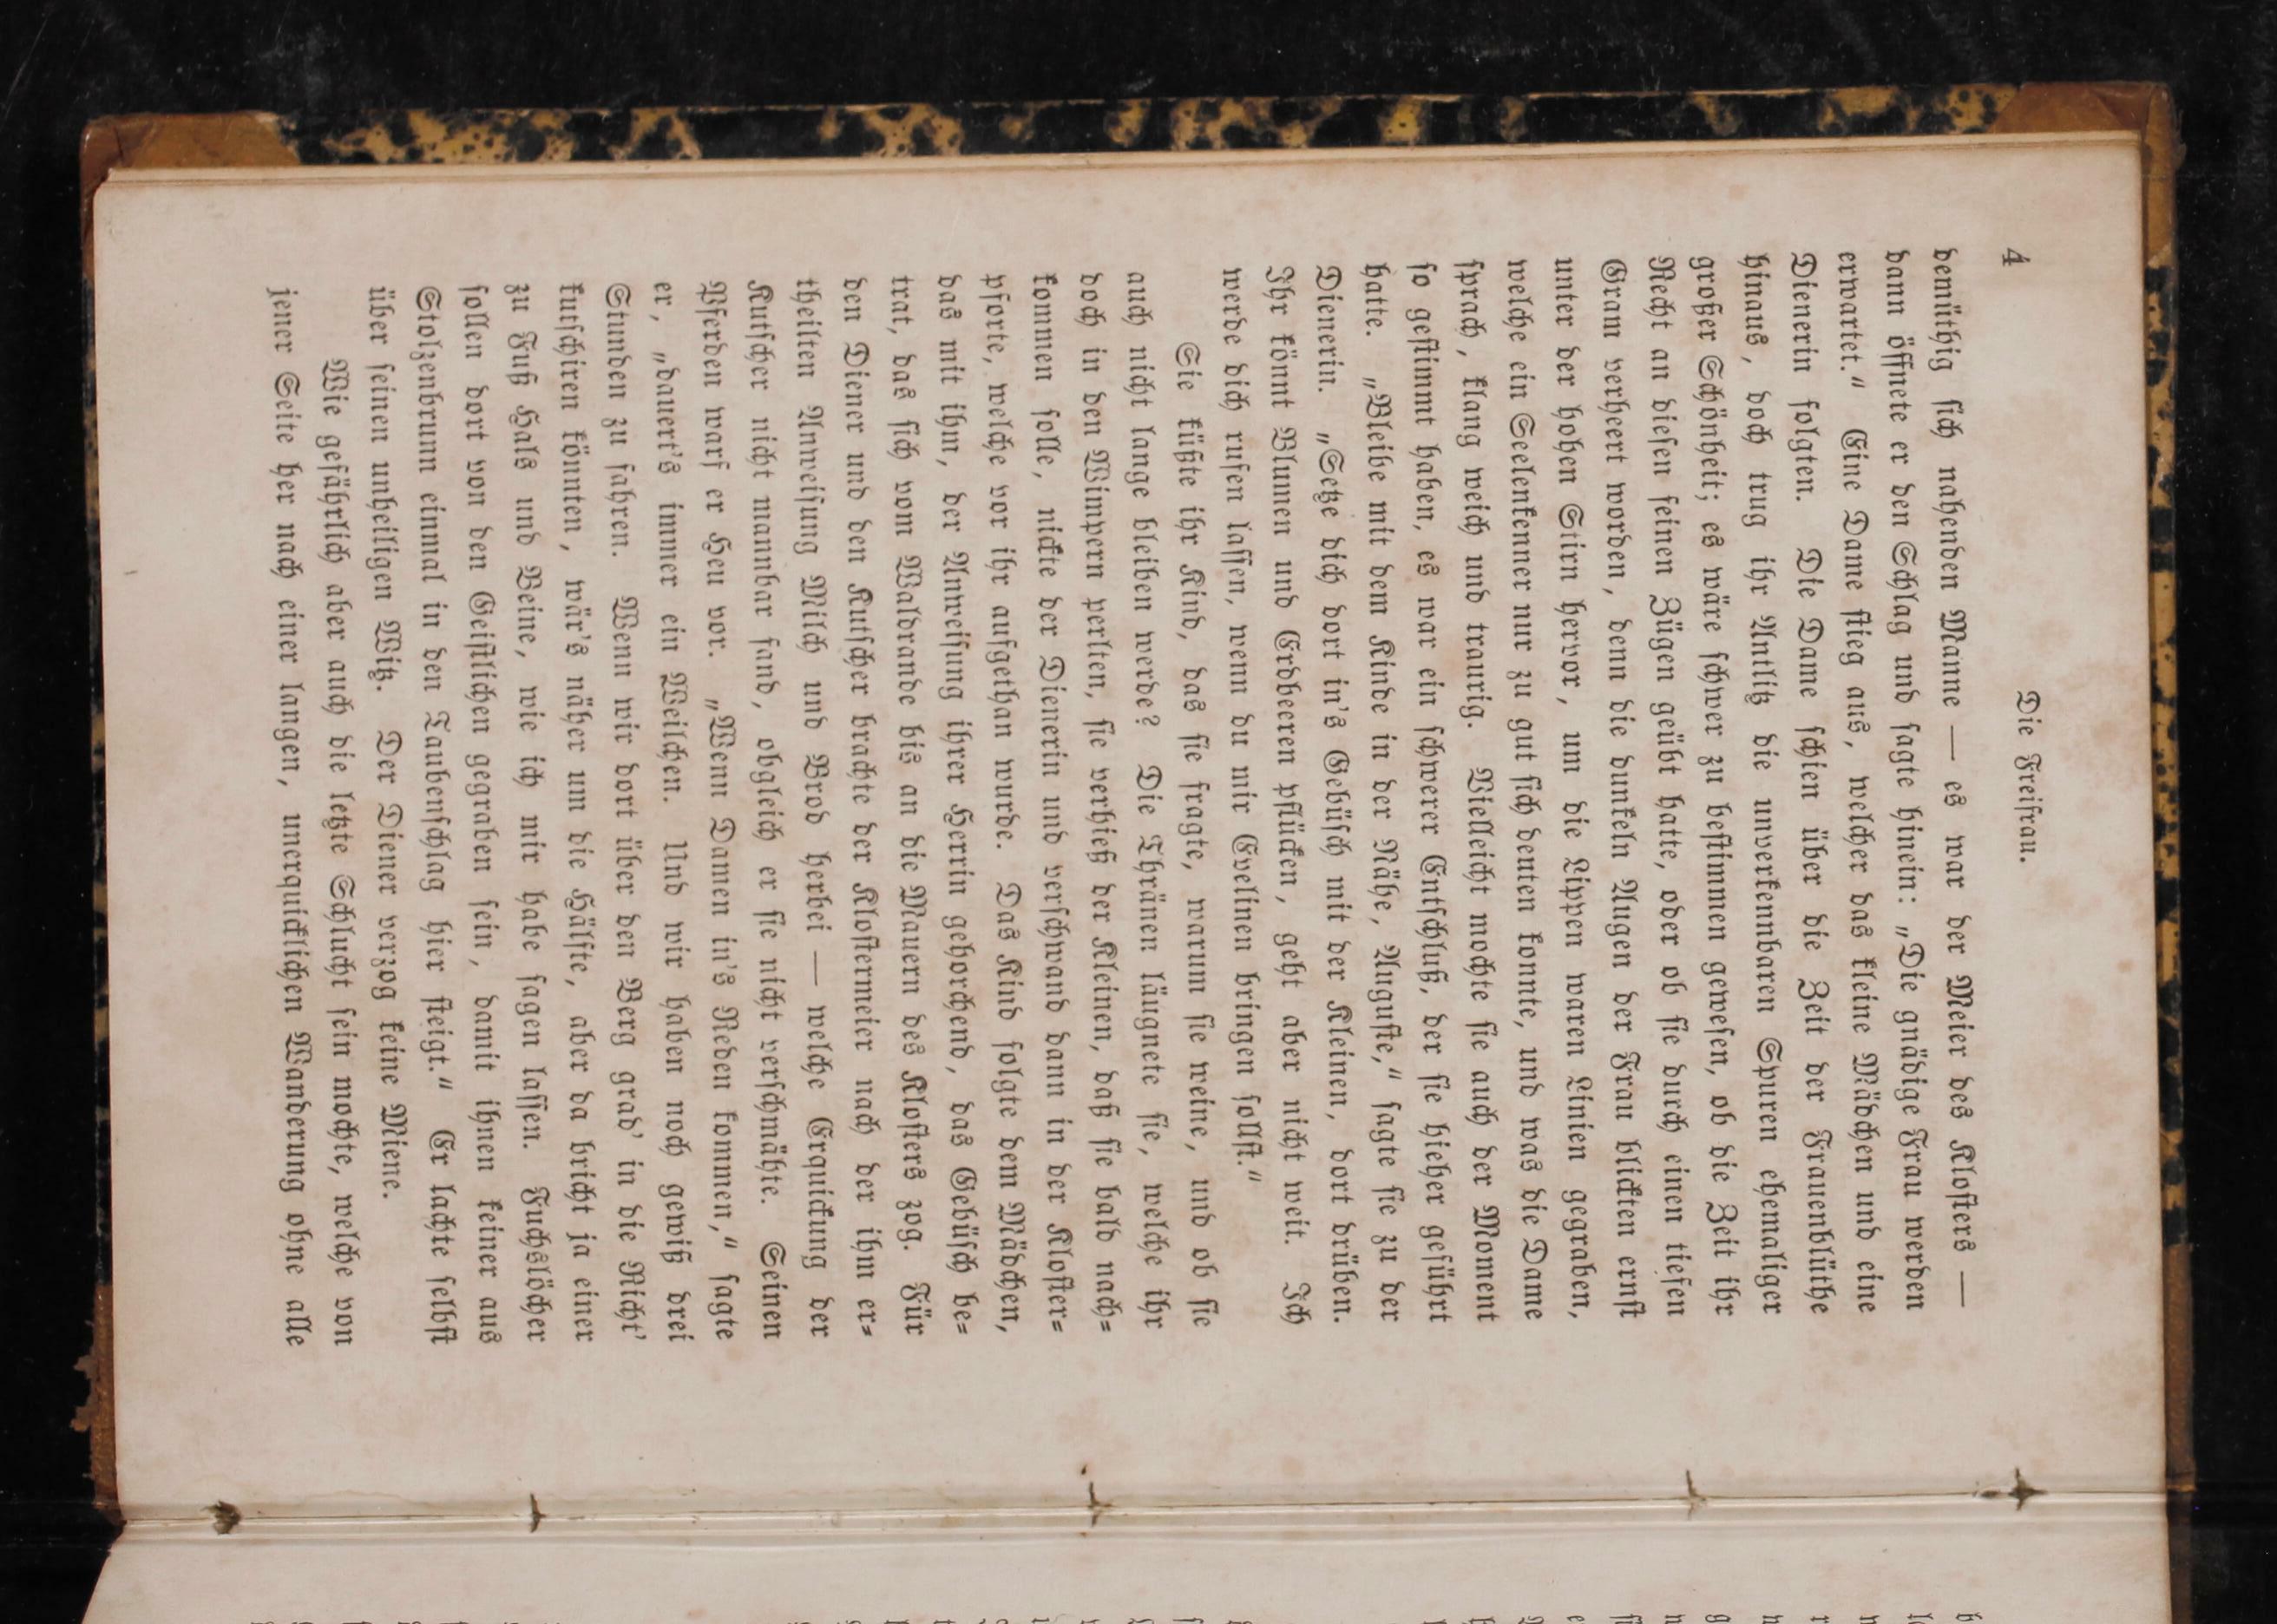 4 Die Freifrau.
demüthig ſich nahenden Manne — es war der Meier des Kloſters —
dann öffnete er den Schlag und ſagte hinein: „Die gnädige Frau werden
erwartet.“ Eine Dame ſtieg aus, welcher das kleine Mädchen und eine
Dienerin folgten. Die Dame ſchien über die Zeit der Frauenblüthe
hinaus, doch trug ihr Antlitz die unverkennbaren Spuren ehemaliger
großer Schönheit; es wäre ſchwer zu beſtimmen geweſen, ob die Zeit ihr
Recht an dieſen feinen Zügen geübt hatte, oder ob ſie durch einen tiefen
Gram verheert worden, denn die dunkeln Augen der Frau blickten ernſt
unter der hohen Stirn hervor, um die Lippen waren Linien gegraben,
welche ein Seelenkenner nur zu gut ſich deuten konnte, und was die Dame
ſprach, klang weich und traurig. Vielleicht mochte ſie auch der Moment
ſo geſtimmt haben, es war ein ſchwerer Entſchluß, der ſie hieher geführt
hatte. „Bleibe mit dem Kinde in der Nähe, Auguſte,“ ſagte ſie zu der
Dienerin. „Setze dich dort in's Gebüſch mit der Kleinen, dort drüben.
Ihr könnt Blumen und Erdbeeren pflücken, geht aber nicht weit. Ich
werde dich rufen laſſen, wenn du mir Evelinen bringen ſollſt.“
Sie küßte ihr Kind, das ſie fragte, warum ſie weine, und ob ſie
auch nicht lange bleiben werde? Die Thränen läugnete ſie, welche ihr
doch in den Wimpern perlten, ſie verhieß der Kleinen, daß ſie bald nach=
kommen ſolle, nickte der Dienerin und verſchwand dann in der Kloſter=
pforte, welche vor ihr aufgethan wurde. Das Kind folgte dem Mädchen,
das mit ihm, der Anweiſung ihrer Herrin gehorchend, das Gebüſch be=
trat, das ſich vom Waldrande bis an die Mauern des Kloſters zog. Für
den Diener und den Kutſcher brachte der Kloſtermeier nach der ihm er=
theilten Anweiſung Milch und Brod herbei — welche Erquickung der
Kutſcher nicht mannbar fand, obgleich er ſie nicht verſchmähte. Seinen
Pferden warf er Heu vor. „Wenn Damen in's Reden kommen,“ ſagte
er, „dauert's immer ein Weilchen. Und wir haben noch gewiß drei
Stunden zu fahren. Wenn wir dort über den Berg grad' in die Richt'
kutſchiren könnten, wär's näher um die Hälfte, aber da bricht ja einer
zu Fuß Hals und Beine, wie ich mir habe ſagen laſſen. Fuchslöcher
ſollen dort von den Geiſtlichen gegraben ſein, damit ihnen keiner aus
Stolzenbrunn einmal in den Taubenſchlag hier ſteigt.“ Er lachte ſelbſt
über ſeinen unheiligen Witz. Der Diener verzog keine Miene.
Wie gefährlich aber auch die letzte Schlucht ſein mochte, welche von
jener Seite her nach einer langen, unerquicklichen Wanderung ohne alle